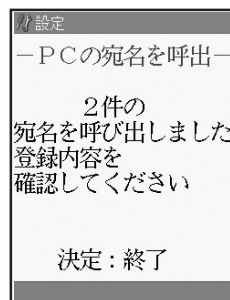 設定
－ＰＣの宛名を呼出－
２件の
宛名を呼び出しました
登録内容を
確認してください
決定：終了